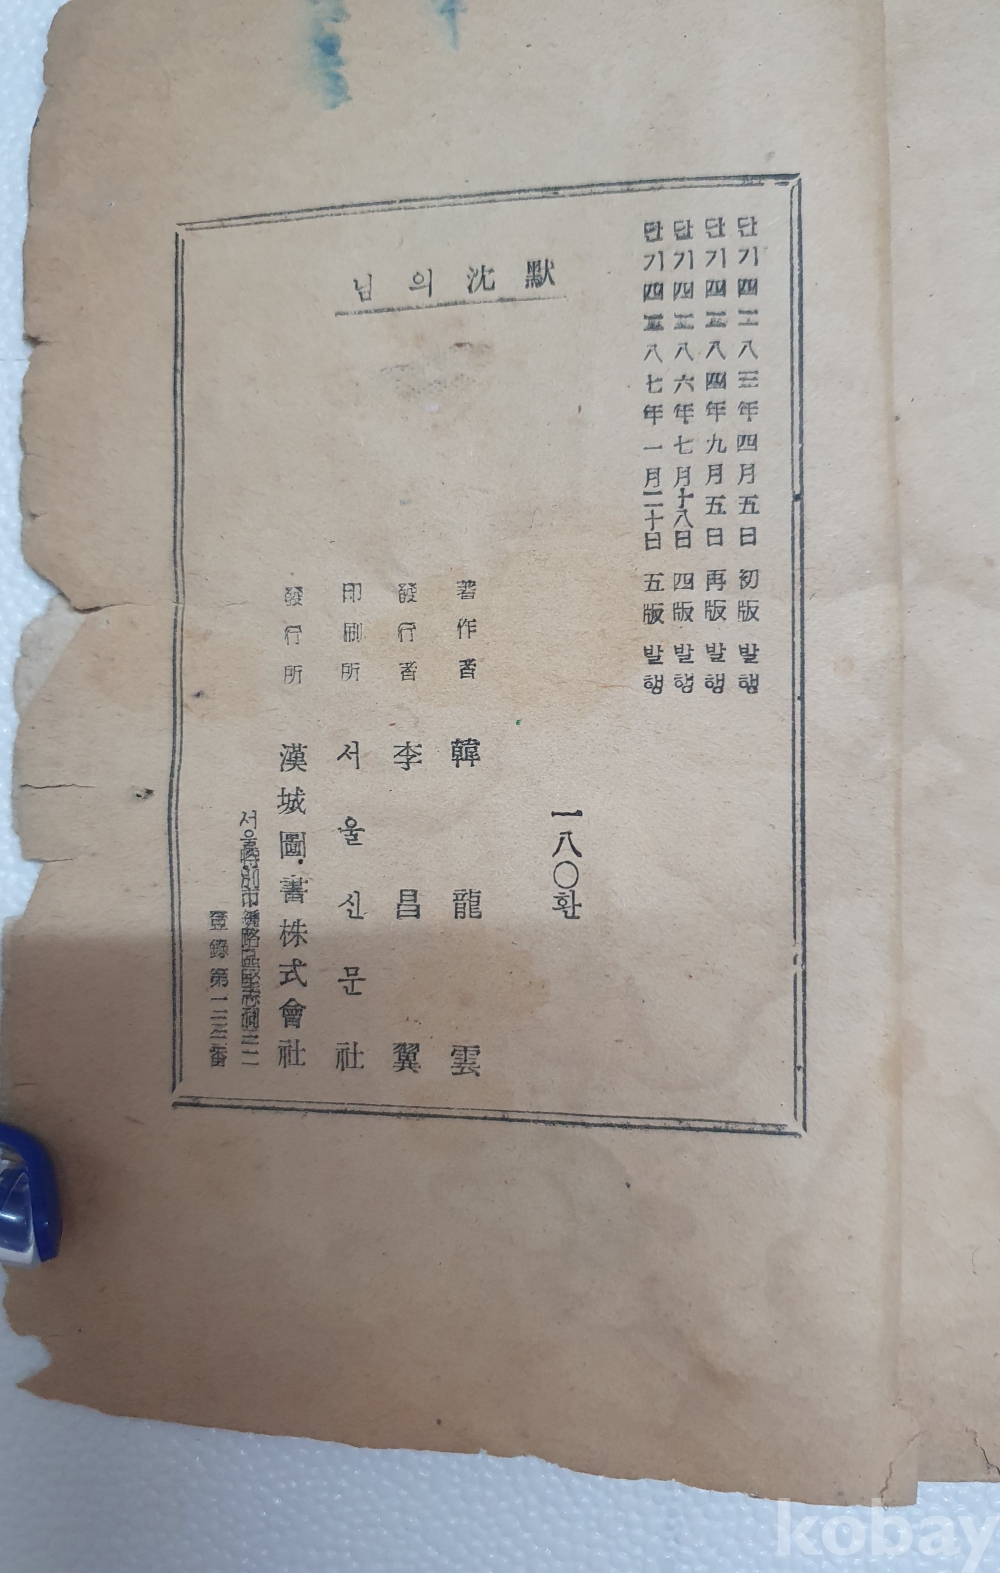 단기四二八三年四月五日 初版 발행
단기四二八四年九月五日 再版 발행
단기四二八六年七月十八日 四版 발행
단기四二八七年一月二十日 五版 발행
님의沈默
一八〇환
著作者 韓龍雲
發行者 李昌翼
印刷所 서울신문社
發行所 漢城圖書株式會社
서울特別市鍾路區堅志洞三二
登錄第一二三番
kobay